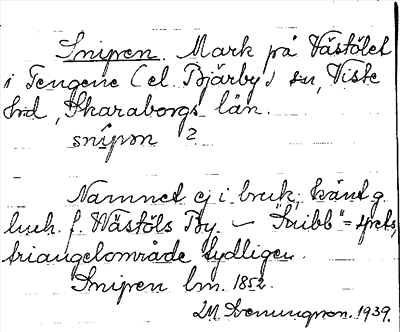 Snipen. Mark på Västölet
i Tengene (el. Bjärby) sn, Viste
hrd, Skaraborgs län.
snipən ?
Namnet ej i bruk, känt g.
lush. f. Wästöls By. — "Snibb" = spets,
triangelområde tydligen.
Snipen lm. 1852.
LM Svenungson. 1939.